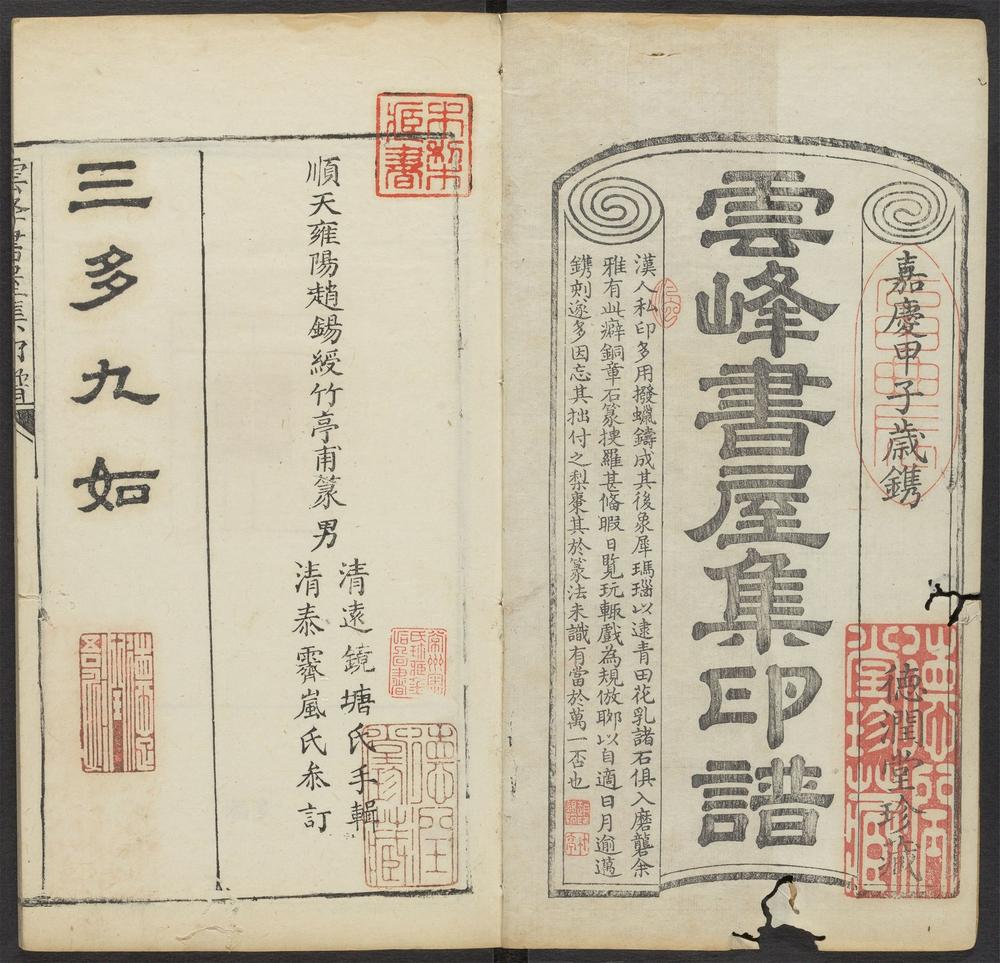 嘉慶甲子歲鐫
德潤堂珍藏
雲峰書屋集印譜
漢人私印多用撥蠟鑄成其後象犀瑪瑙以逮青田花乳諸石俱入磨礱余
雅有此癖銅章石篆摉羅甚俻暇日覽玩輙戲為規倣聊以自適日月逾邁
鐫刻遂多因忘其拙付之梨棗其於篆法未識有當於萬一否也
順天雍陽趙錫綬竹亭甫篆男
清遠鏡塘氏手輯
清泰霽嵐氏叅訂
三多九如